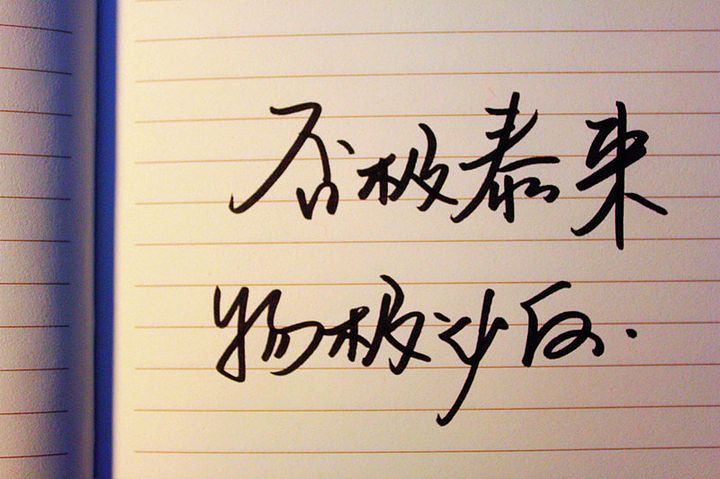 否极泰来
物极必反.